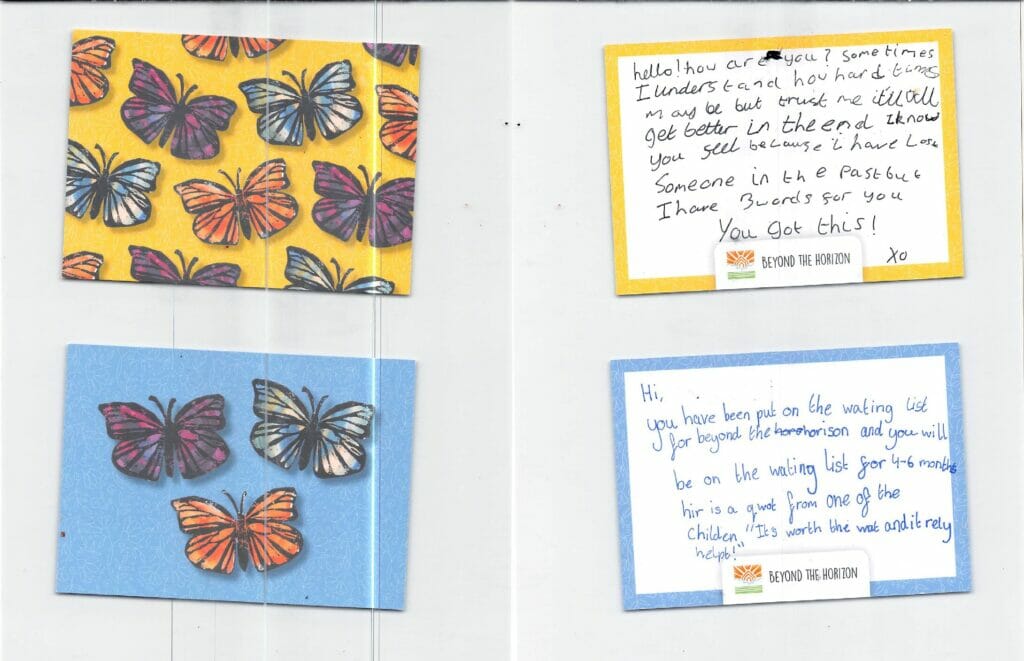 hello! how are you? sometimes
I understand how hard times
may be but trust me it'll all
get better in the end I know
you feel because i have Lose
Someone in the Past but
I have 3 words for you
You Got this!
BEYOND THE HORIZON
XO
Hi,
you have been put on the wating list
for beyond the horison and you will
be on the wating list for 4-6 months
hir is a qwot from one of the
Childen "It's worth the wat and it rely
helps!"
BEYOND THE HORIZON